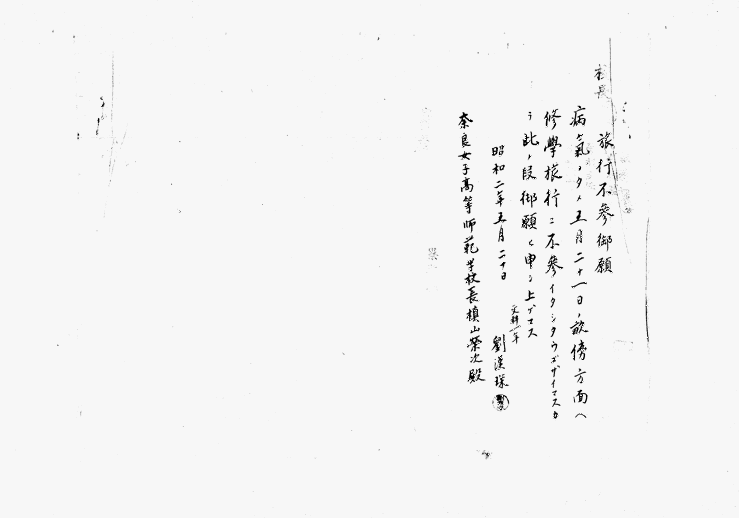 校長
旅行不參御願
病氣ノタメ五月二十一日ノ畝傍方面ヘ
修學旅行ニ不參イタシタウゴザイマスカ
ラ此ノ段御願ヒ申シ上ゲマス
昭和二年五月二十日
文科一年
劉漢
奈良女子高等師範学校長槙山榮次殿